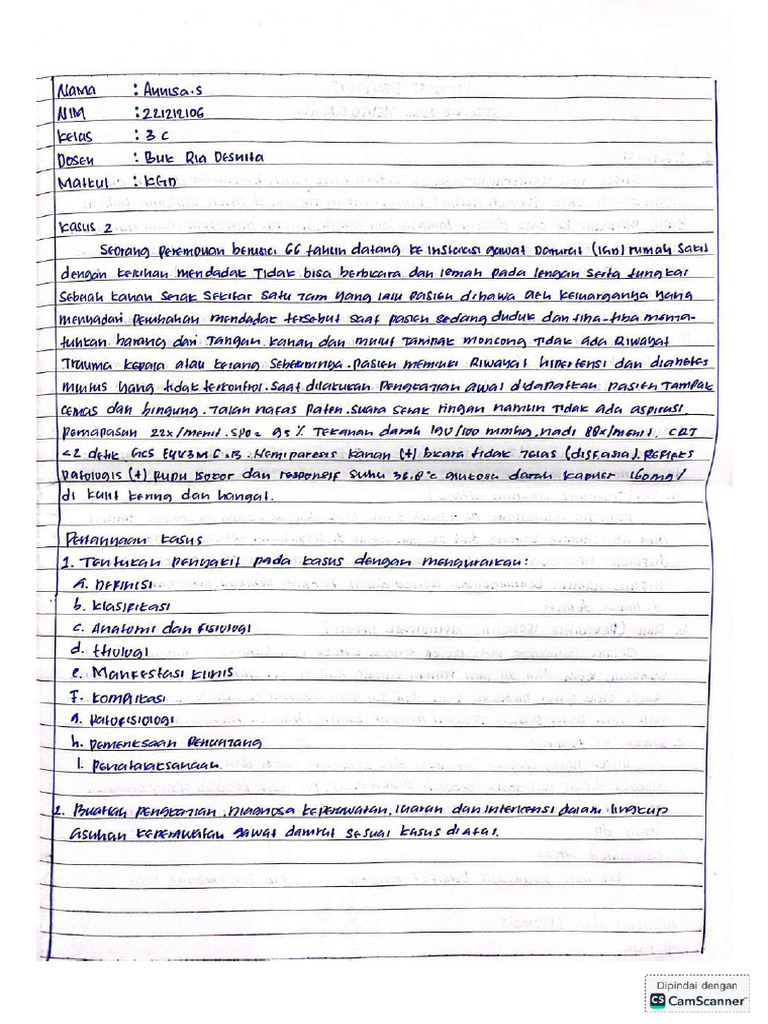 Nama : Annisa.S
NIM : 221212106
Kelas : 3C
Dosen : Buk Ria Desnita
Matkul : KGD
Kasus 2
Seorang perempuan berusia 66 tahun datang ke instalasi gawat Darurat (IGD) rumah sakit
dengan keluhan mendadak Tidak bisa berbicara dan lemah pada lengan serta tungkai
Sebelah kanan sejak sekitar satu jam yang lalu pasien dibawa oleh keluarganya yang
menyadari perubahan mendadak tersebut saat pasien sedang duduk dan tiba-tiba menja-
tuhkan barang dari tangan kanan dan mulut Tampak moncong Tidak ada Riwayat
Trauma kepala atau kejang sebelumnya. pasien memiliki Riwayat hipertensi dan diabetes
militus yang tidak terkontrol. Saat dilakukan Pengkajian awal didapatkan pasien Tampak
cemas dan bingung. Jalan nafas Paten. suara serak ringan namun Tidak ada aspirasi.
pernapasan 22x/menit. SPO2 95% Tekanan darah 190/100 mmhg, nadi 88x/menit. CRT
<2 detik GCS E4V3M6. Hemiparesis kanan (+) bicara tidak Jelas (disfasia). REFleks
Patologis (+) pupil isokor dan responsif suhu 36.8°C glukosa darah kapiler 160mg/
dl kulit kering dan hangat.
Pertanyaan kasus
1. Tentukan penyakit pada kasus dengan menguraikan:
a. DEFINISI
b. klasifikasi
c. Anatomi dan Fisiologi
d. Etiologi
e. Manifestasi klinis
f. komplikasi
g. Patofisiologi
h. pemeriksaan Penunjang
i. penatalaksanaan
2. Buatlah pengkajian, Diagnosa keperawatan, luaran dan intervensi dalam lingkup
asuhan keperawatan gawat darurat sesuai kasus diatas.
Dipindai dengan
CS CamScanner